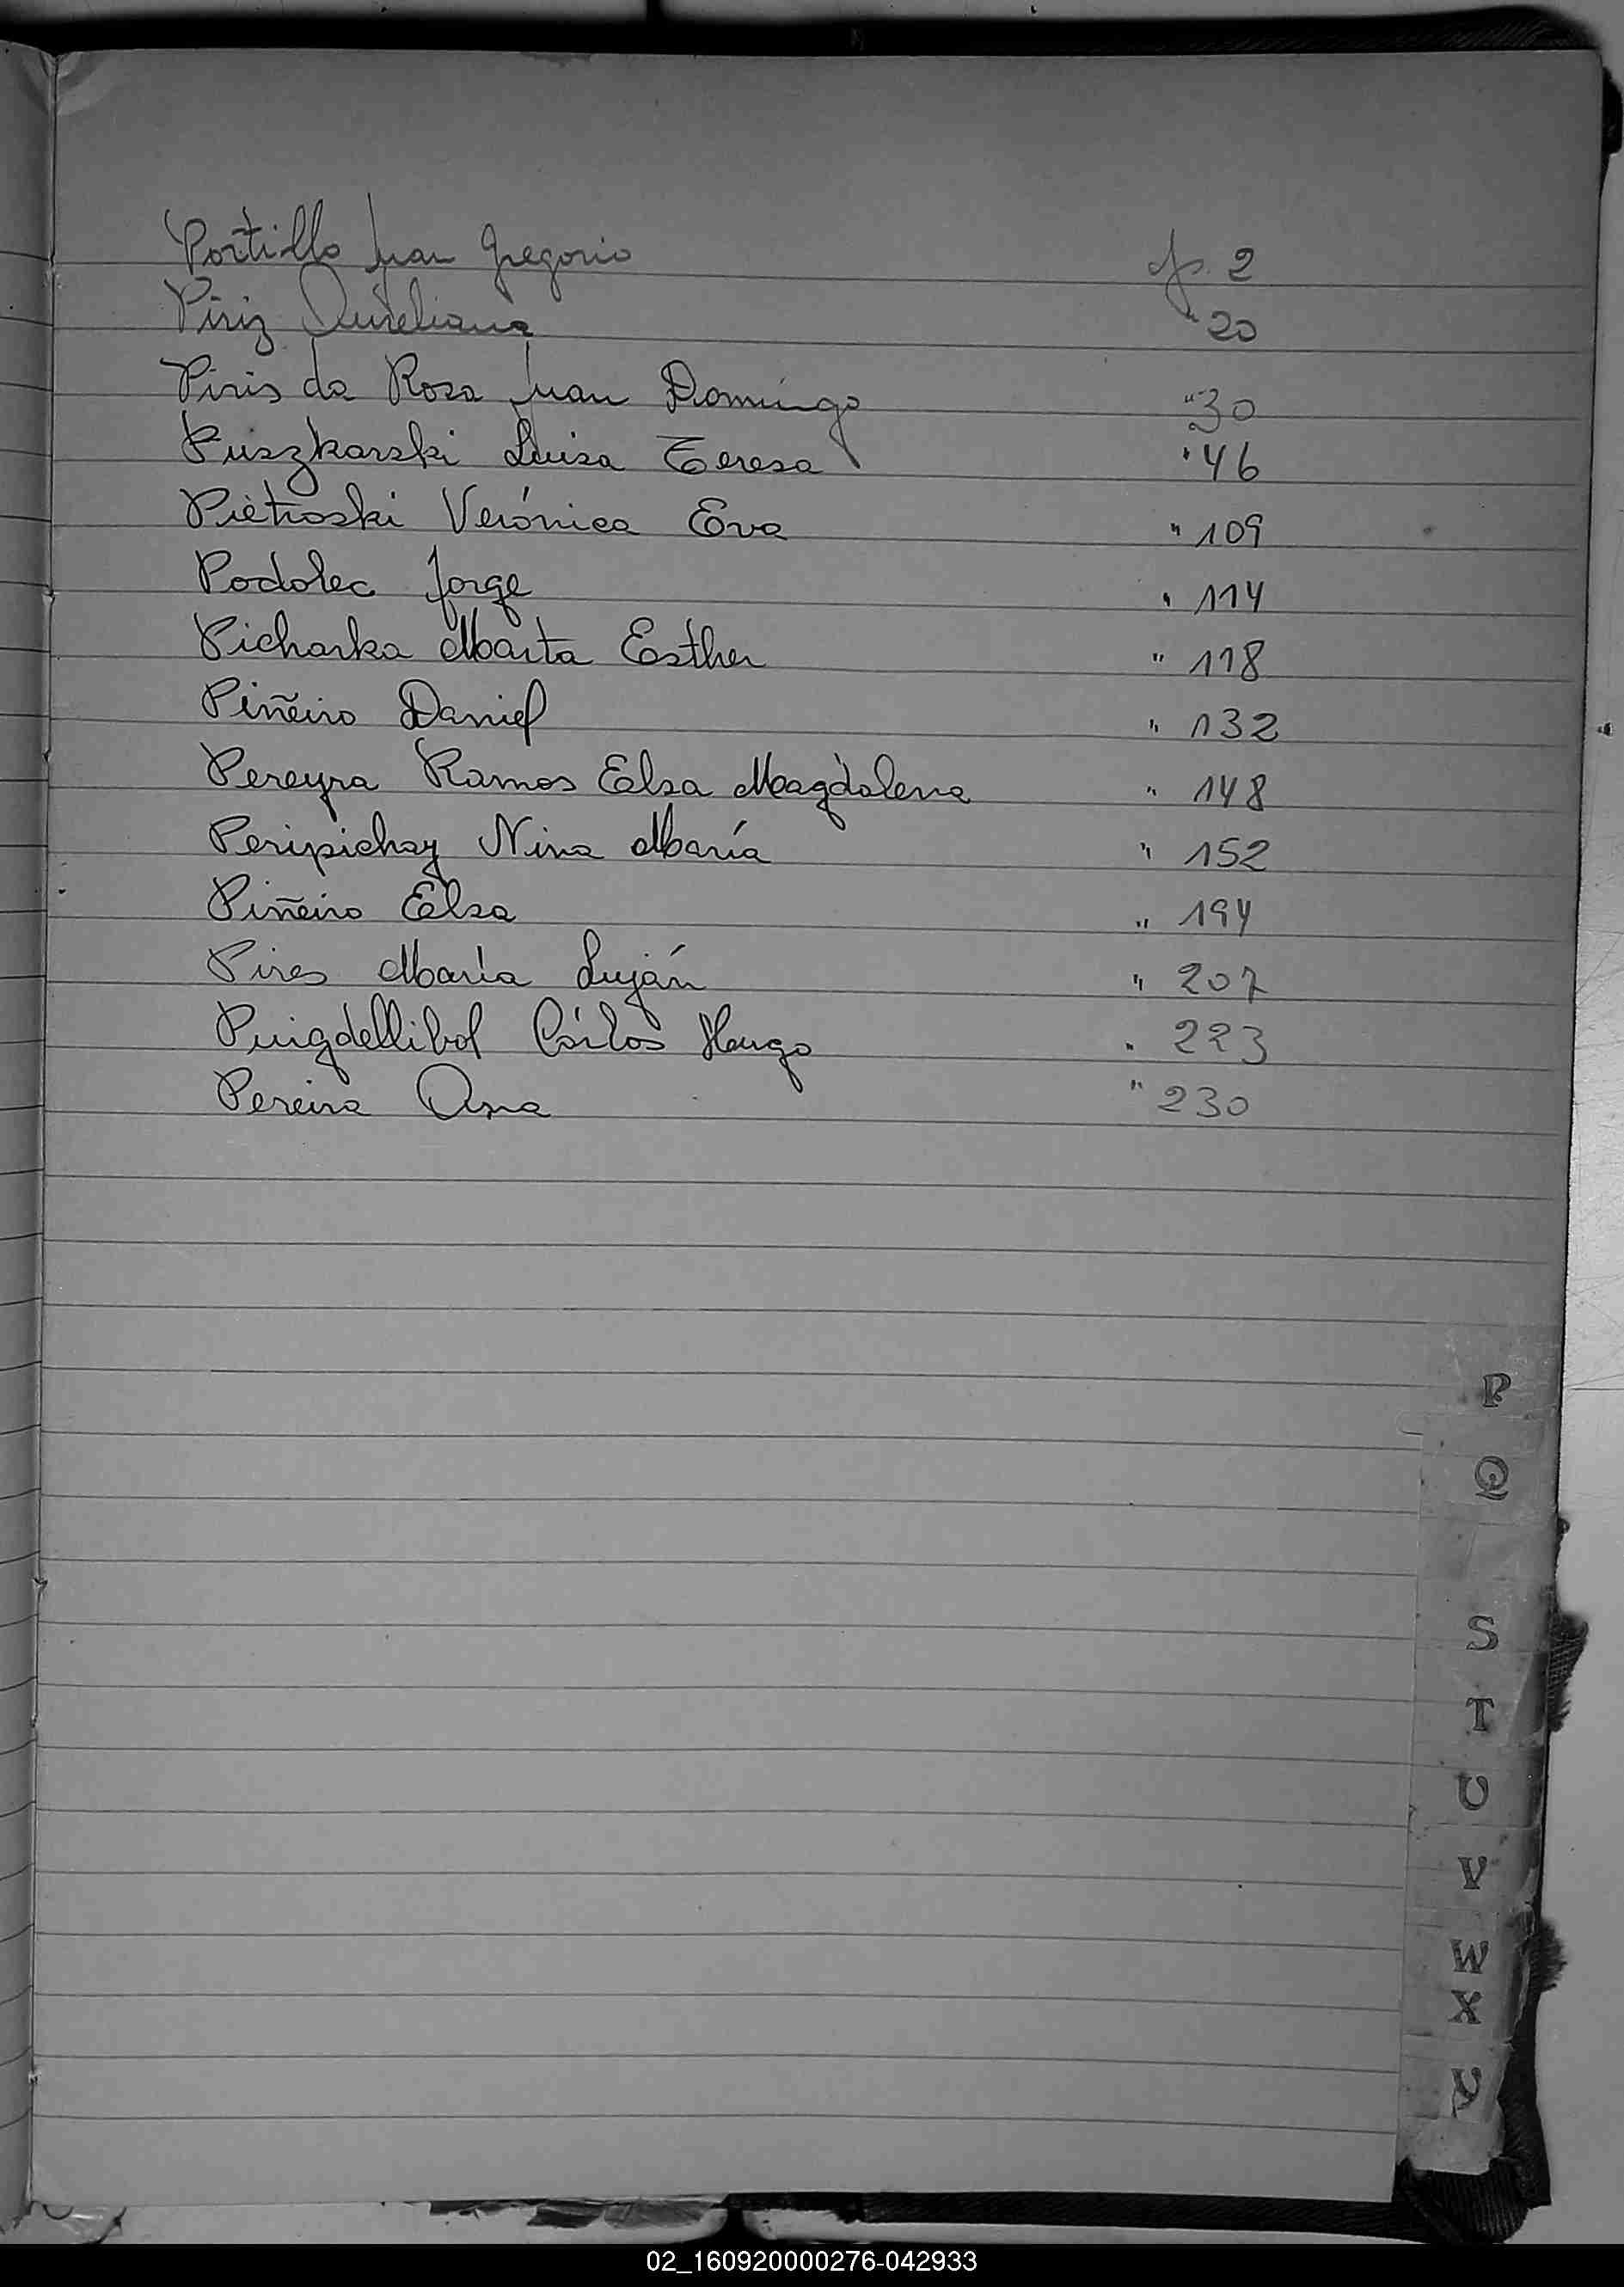 Portillo Juan Gregorio fs. 2
Piriz Aureliana " 20
Piris da Rosa Juan Domingo " 30
Puszkarski Luisa Teresa " 46
Pietroski Verónica Eva " 109
Podolec Jorge " 114
Picharka Marta Esther " 118
Piñeiro Daniel " 132
Pereyra Ramos Elsa Magdalena " 148
Peripichay Nina María " 152
Piñeiro Elsa " 194
Pires María Luján " 207
Puigdellibol Cárlos Hugo " 223
Pereira Ana " 230
P
Q
S
T
U
V
W
X
Y
02_160920000276-042933